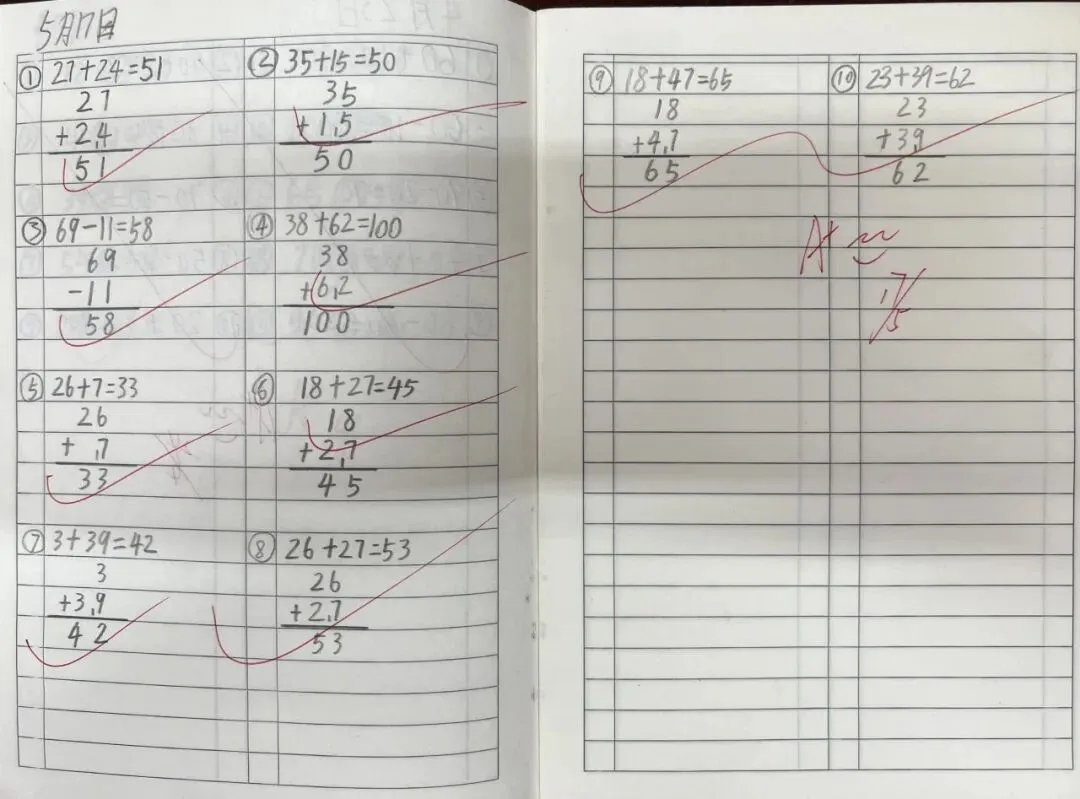 5月17日
① 27+24=51
27
+2,4
51
② 35+15=50
35
+1,5
50
③ 69-11=58
69
-11
58
④ 38+62=100
38
+6,2
100
⑤ 26+7=33
26
+ ,7
33
⑥ 18+27=45
18
+2,7
45
⑦ 3+39=42
3
+3,9
42
⑧ 26+27=53
26
+2,7
53
⑨ 18+47=65
18
+4,7
65
⑩ 23+39=62
23
+3,9
62
A+
17/5